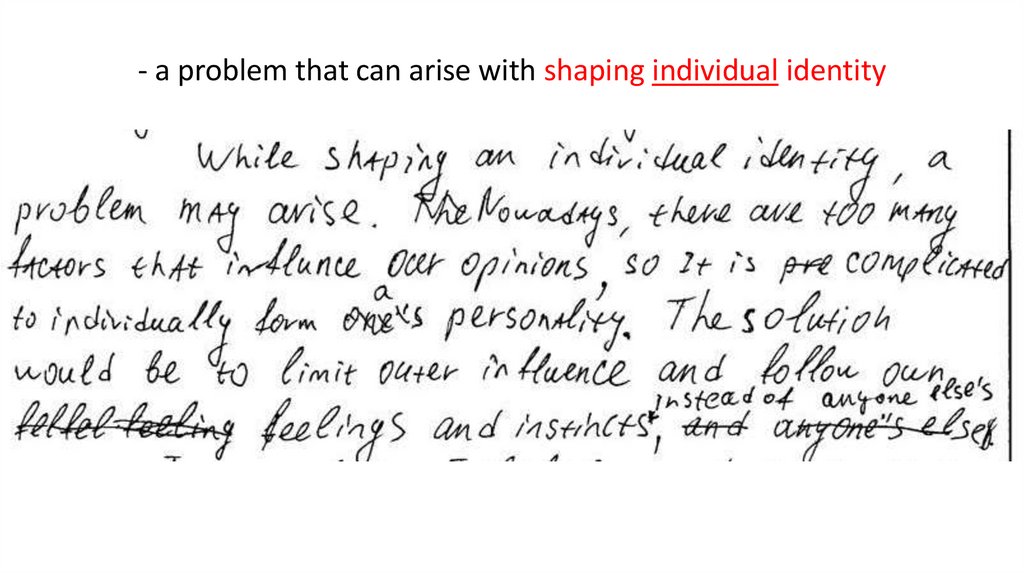 - a problem that can arise with shaping individual identity
While shaping an individual identity, a
problem may arise. The Nowadays, there are too many
factors that influnce our opinions, so it is pre complicated
to individually form a one's personality. The solution
would be to limit outer influence and follow own
instead of anyone else's
feelings and instincts, and anyone's else